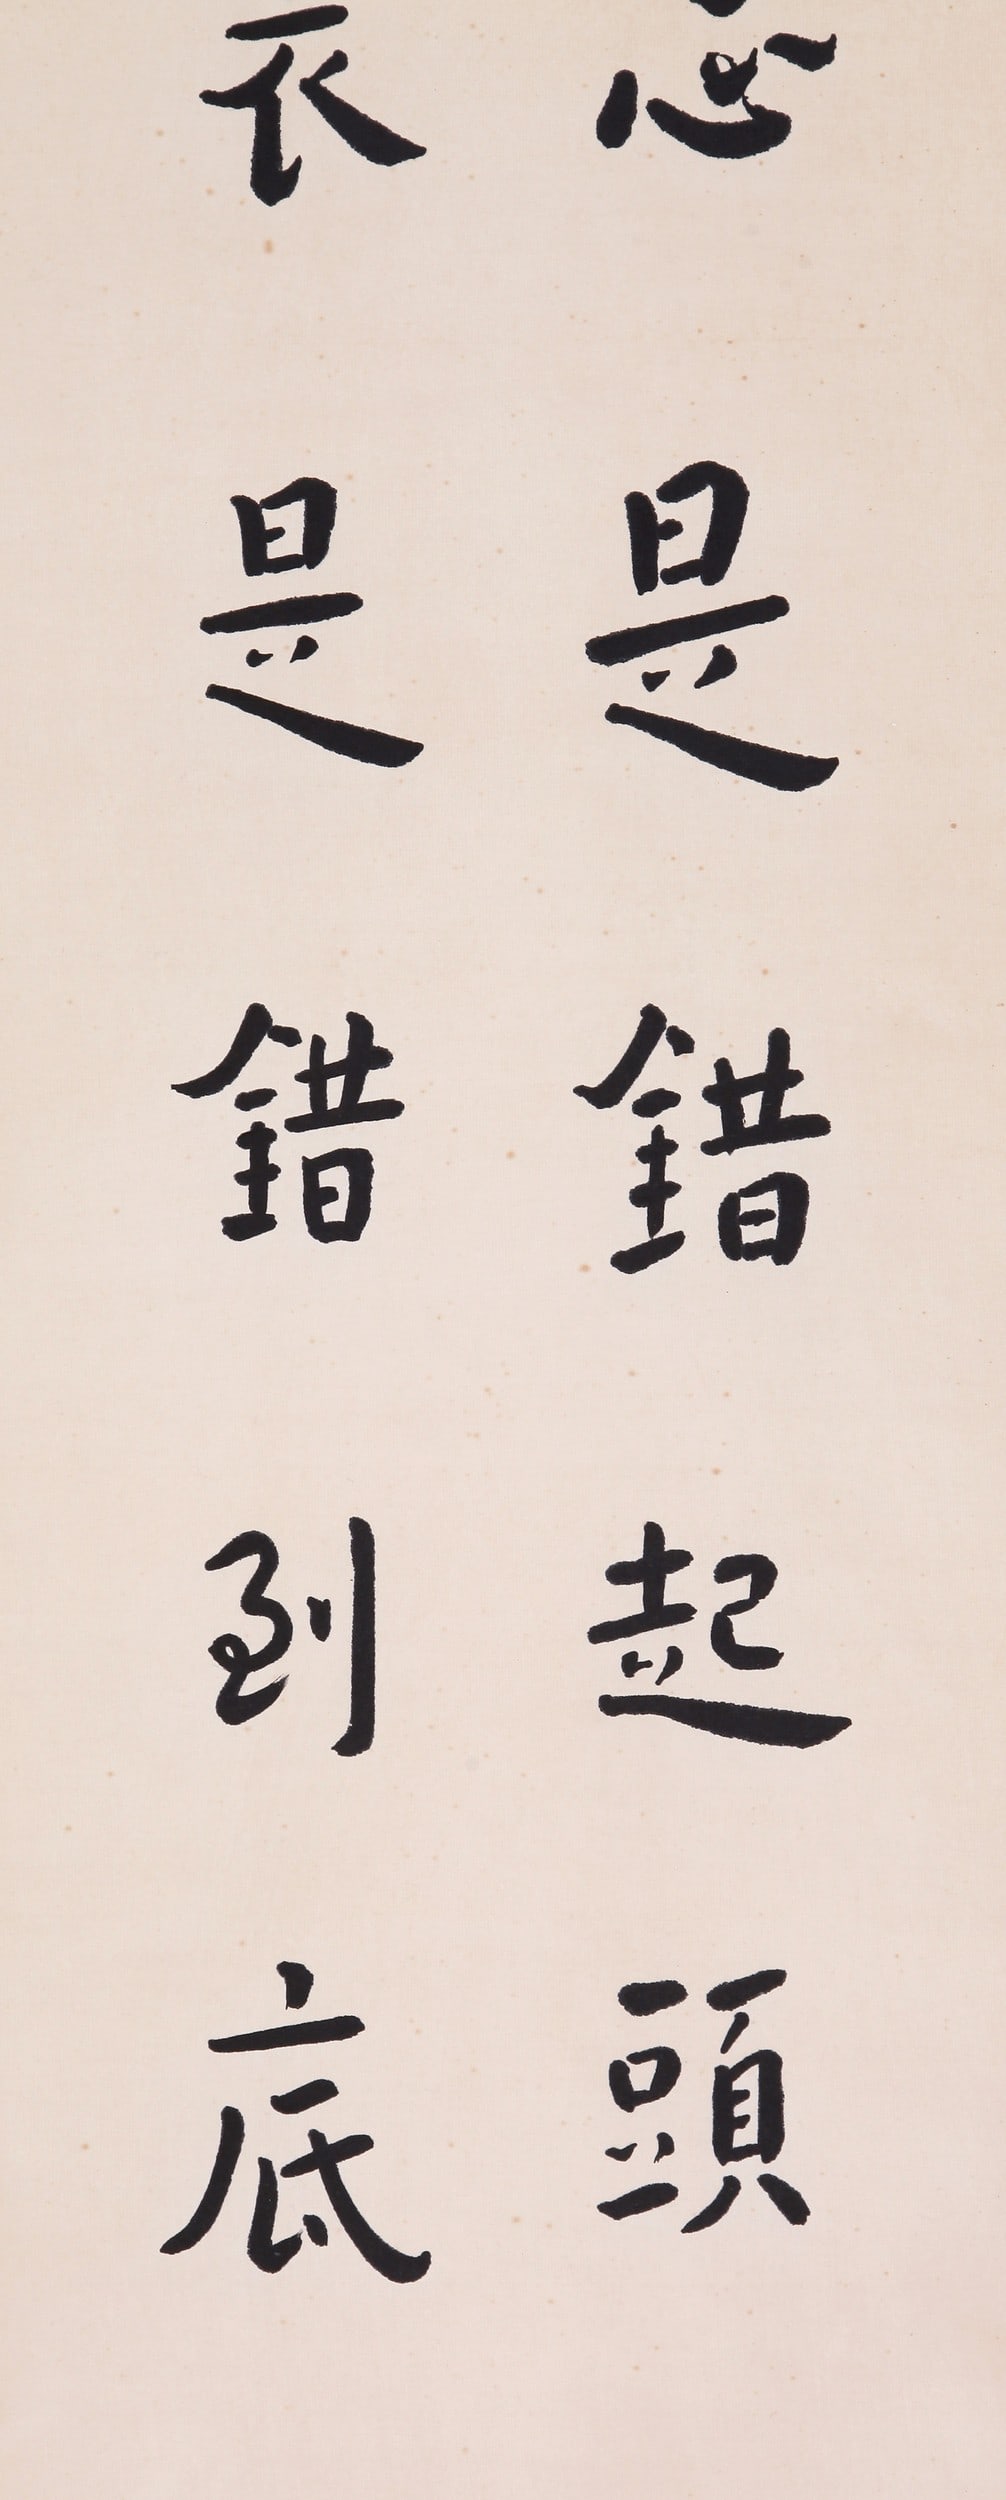 是錯起頭
是錯到底